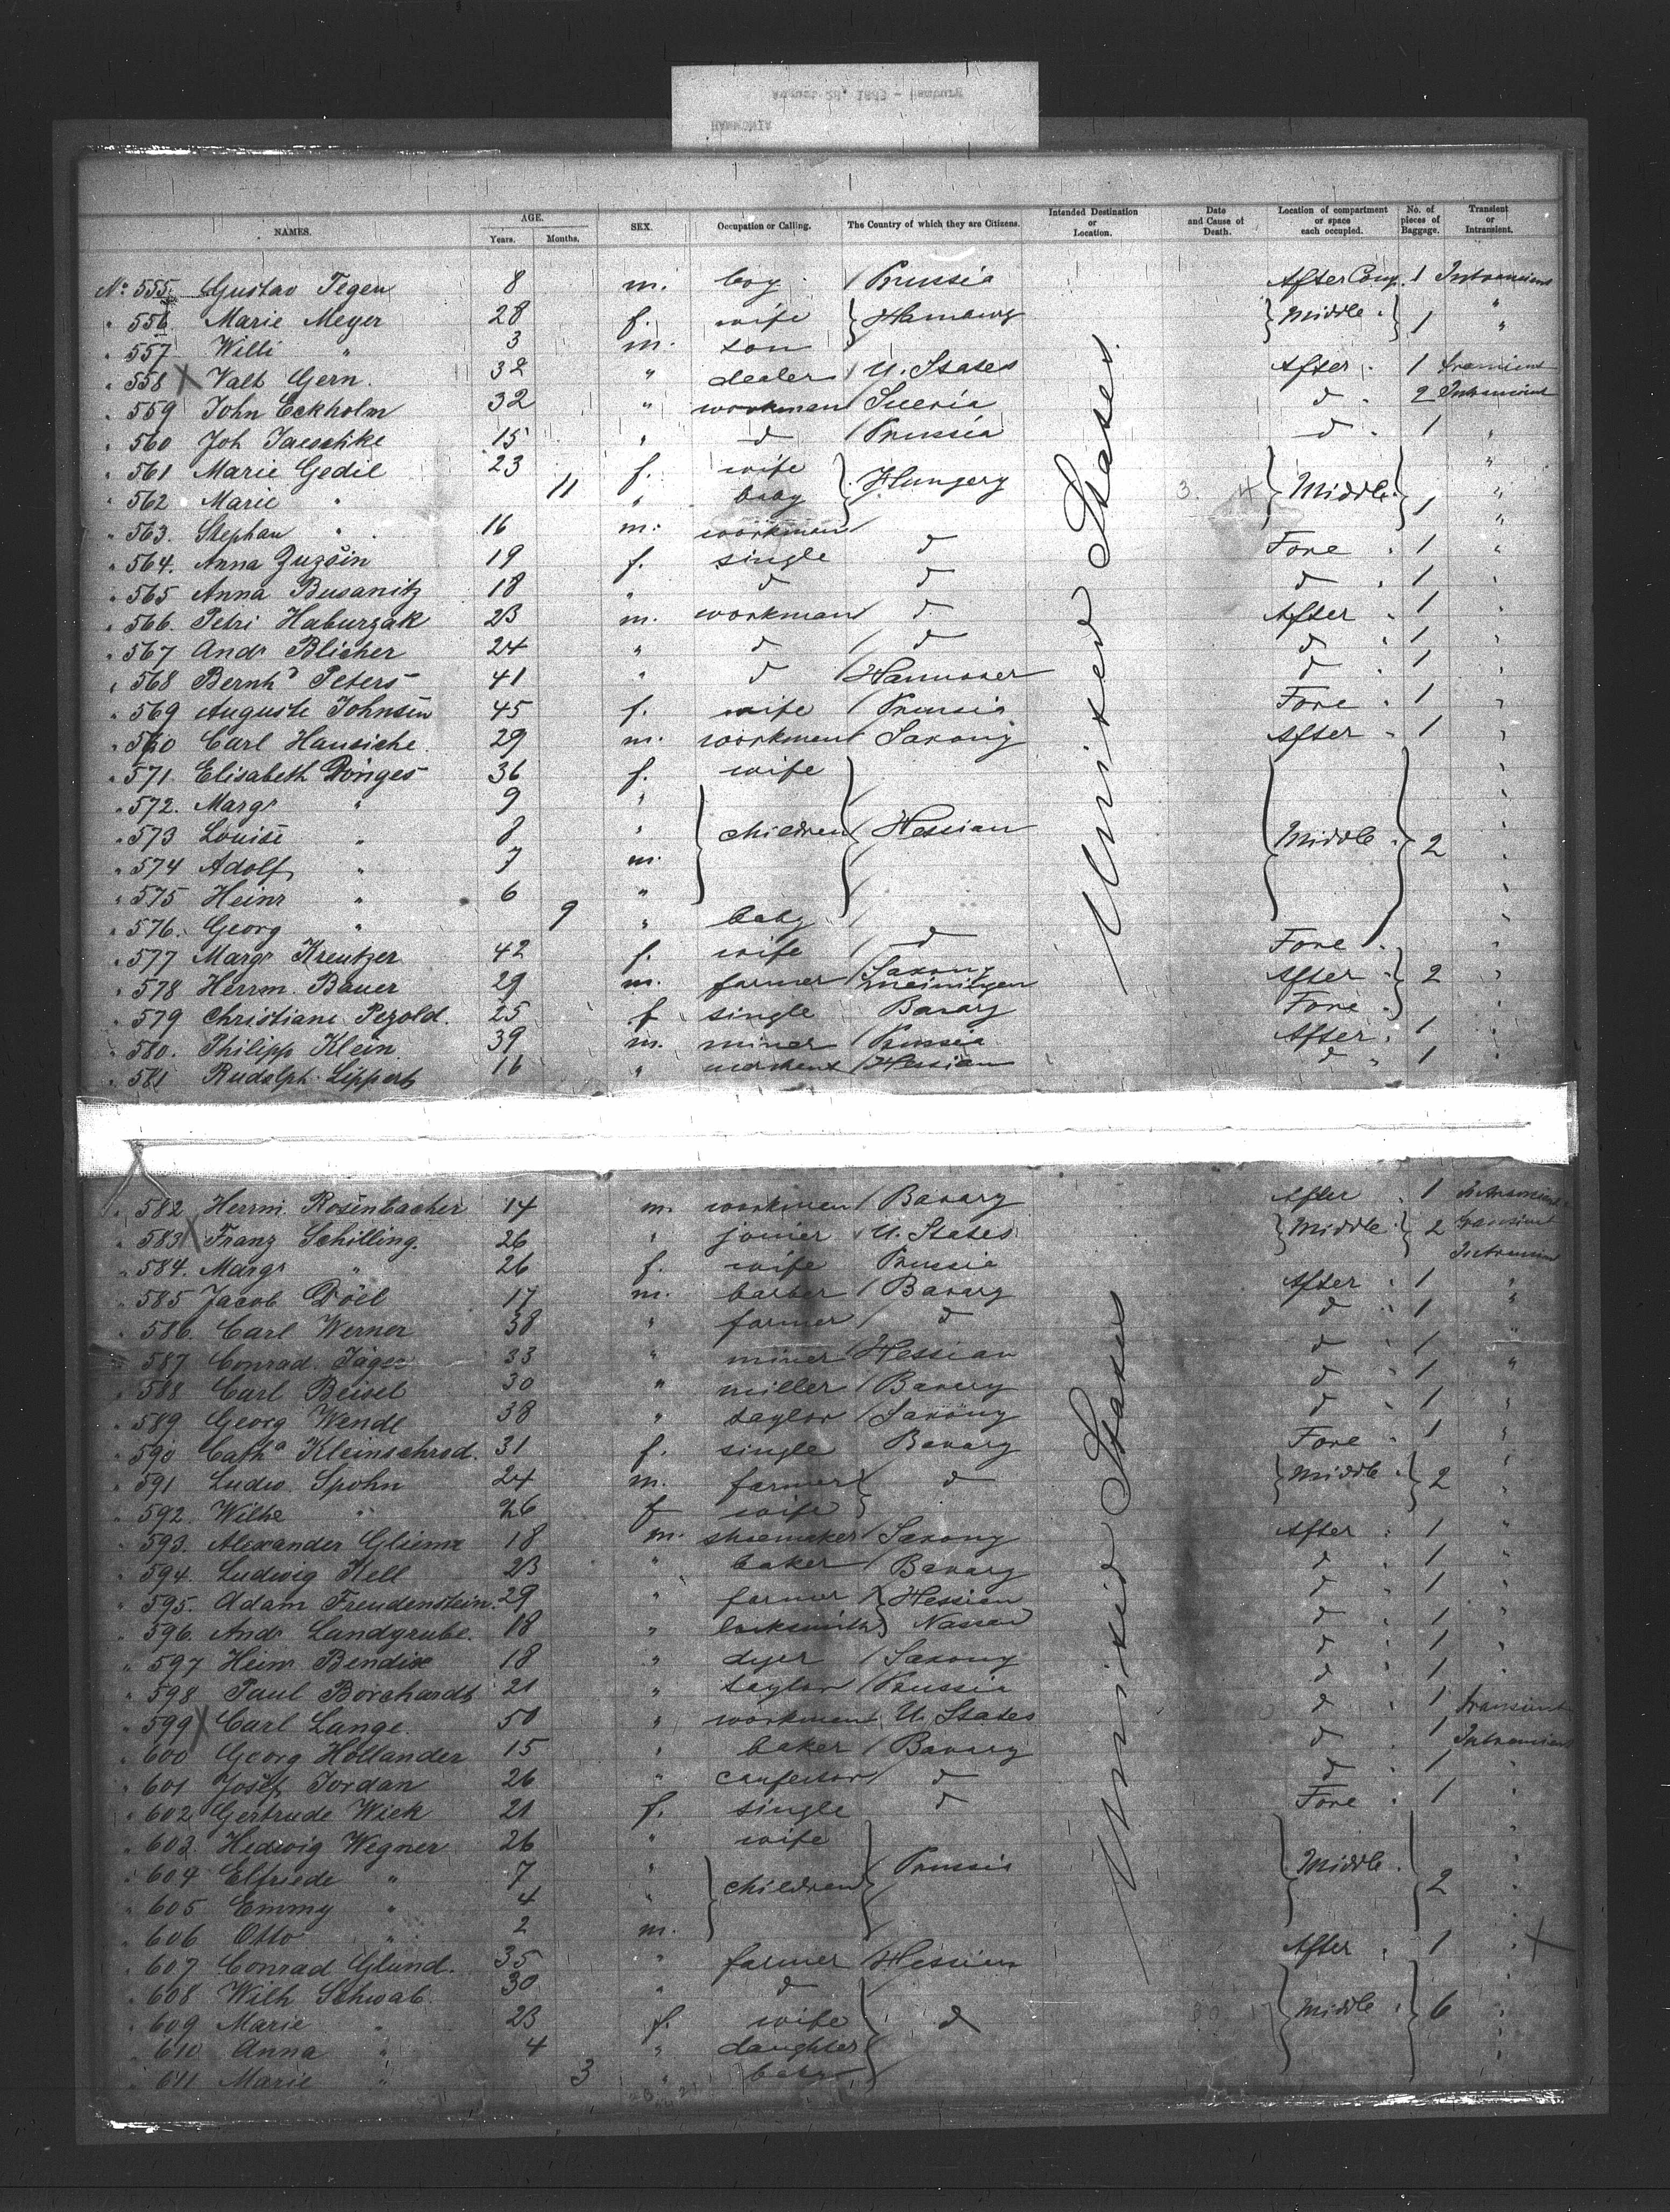 HAMMONIA
NAMES. AGE. Years. Months. SEX. Occupation or Calling. The Country of which they are Citizens. Intended Destination or Location. Date and Cause of Death. Location of compartment or space each occupied. No. of pieces of Baggage. Transient or Intransient.
No. 555. Gustav Tegen 8 m. boy Prussia After Comp. 1 Intransient
" 556. Marie Meyer 28 f. wife } Hamburg } Middle 1 "
" 557 Willi " 3 m. son
" 558 X Valt Gern. 32 " dealer U. States After 1 transient
" 559 John Eckholm 32 " workman Suecia d 2 Intransient
" 560 Joh Jaeschke 15 " d Prussia d 1 "
" 561 Marie Gedil 23 f. wife } Hungary } Middle } 1 "
" 562 Marie " 11 " baby "
" 563. Stephan " 16 m. workman "
" 564. Anna Zuzsin 19 f. single d Fore 1 "
" 565 Anna Busanitz 18 " d d d 1 "
" 566. Petri Haburzak 23 m. workman d After 1 "
" 567 Andr Blicher 24 " d d d 1 "
" 568 Bernhd Peters 41 " d Hannover d 1 "
" 569 Auguste Johnsen 45 f. wife Prussia Fore 1 "
" 570 Carl Hausiche 29 m. workman Saxony After 1 "
" 571. Elisabeth Dönges 36 f. wife } Hessian } Middle } 2 "
" 572. Margr " 9 " } children "
" 573 Louise " 8 " "
" 574 Adolf " 7 m. "
" 575 Heinr " 6 " "
" 576. Georg " 9 " baby "
" 577 Margr Kreutzer 42 f. wife d Fore "
" 578 Herrm. Bauer 29 m. farmer Saxony Meiningen After } 2 "
" 579 Christiane Pezold. 25 f single Bavary Fore "
" 580. Philipp Klein 39 m. miner Prussia After 1 "
" 581 Rudolph Lippert 16 " merchant Hessian d 1
United States
" 582 Herrm. Rosenbacher 14 m. workman Bavary After 1 Intransient
" 583 X Franz Schilling. 26 " joiner U. States } Middle } 2 transient
" 584. Margr " 26 f. wife Prussia Intransient
" 585 Jacob Döll 17 m. barber Bavary After 1 "
" 586 Carl Werner 38 " farmer d d 1 "
" 587 Conrad Jäger 33 " miner Hessian d 1 "
" 588 Carl Beisel 30 " miller Bavary d 1 "
" 589 Georg Wende 38 " taylor Saxony d 1 "
" 590 Catha Kleinschrod. 31 f. single Bavary Fore 1 "
" 591 Ludw. Spohn 24 m. farmer } d } Middle } 2 "
" 592. Wilhe " 26 f wife "
" 593. Alexander Gliemr 18 m. shoemaker Saxony After 1 "
" 594. Ludwig Hell 23 " baker Bavary d 1 "
" 595. Adam Freudenstein. 29 " farmer } Hessian d 1 "
" 596. Andr Landgrube. 18 " locksmith } Nassau d 1 "
" 597 Heinr Bendix 18 " dyer Saxony d 1 "
" 598 Paul Borchardt 21 " taylor Prussia d 1 "
" 599 X Carl Lange. 50 " workman U. States d 1 transient
" 600 Georg Hollander 15 " baker Bavary d 1 Intransient
" 601 Josef Jordan 26 " confector d d 1 "
" 602 Gertrude Wick 21 f. single d Fore 1 "
" 603 Hedwig Wegner 26 " wife } Prussia } Middle } 2 "
" 604 Elfriede " 7 " } children "
" 605 Emmy " 4 " "
" 606 Otto " 2 m.
" 607 Conrad Glund. 35 " farmer Hessian After 1 " X
" 608 Wilh Schwab. 30 " d } d } Middle } 6
" 609 Marie " 23 f. wife "
" 610 Anna " 4 " daughter "
" 611 Marie " 3 " baby "
United States